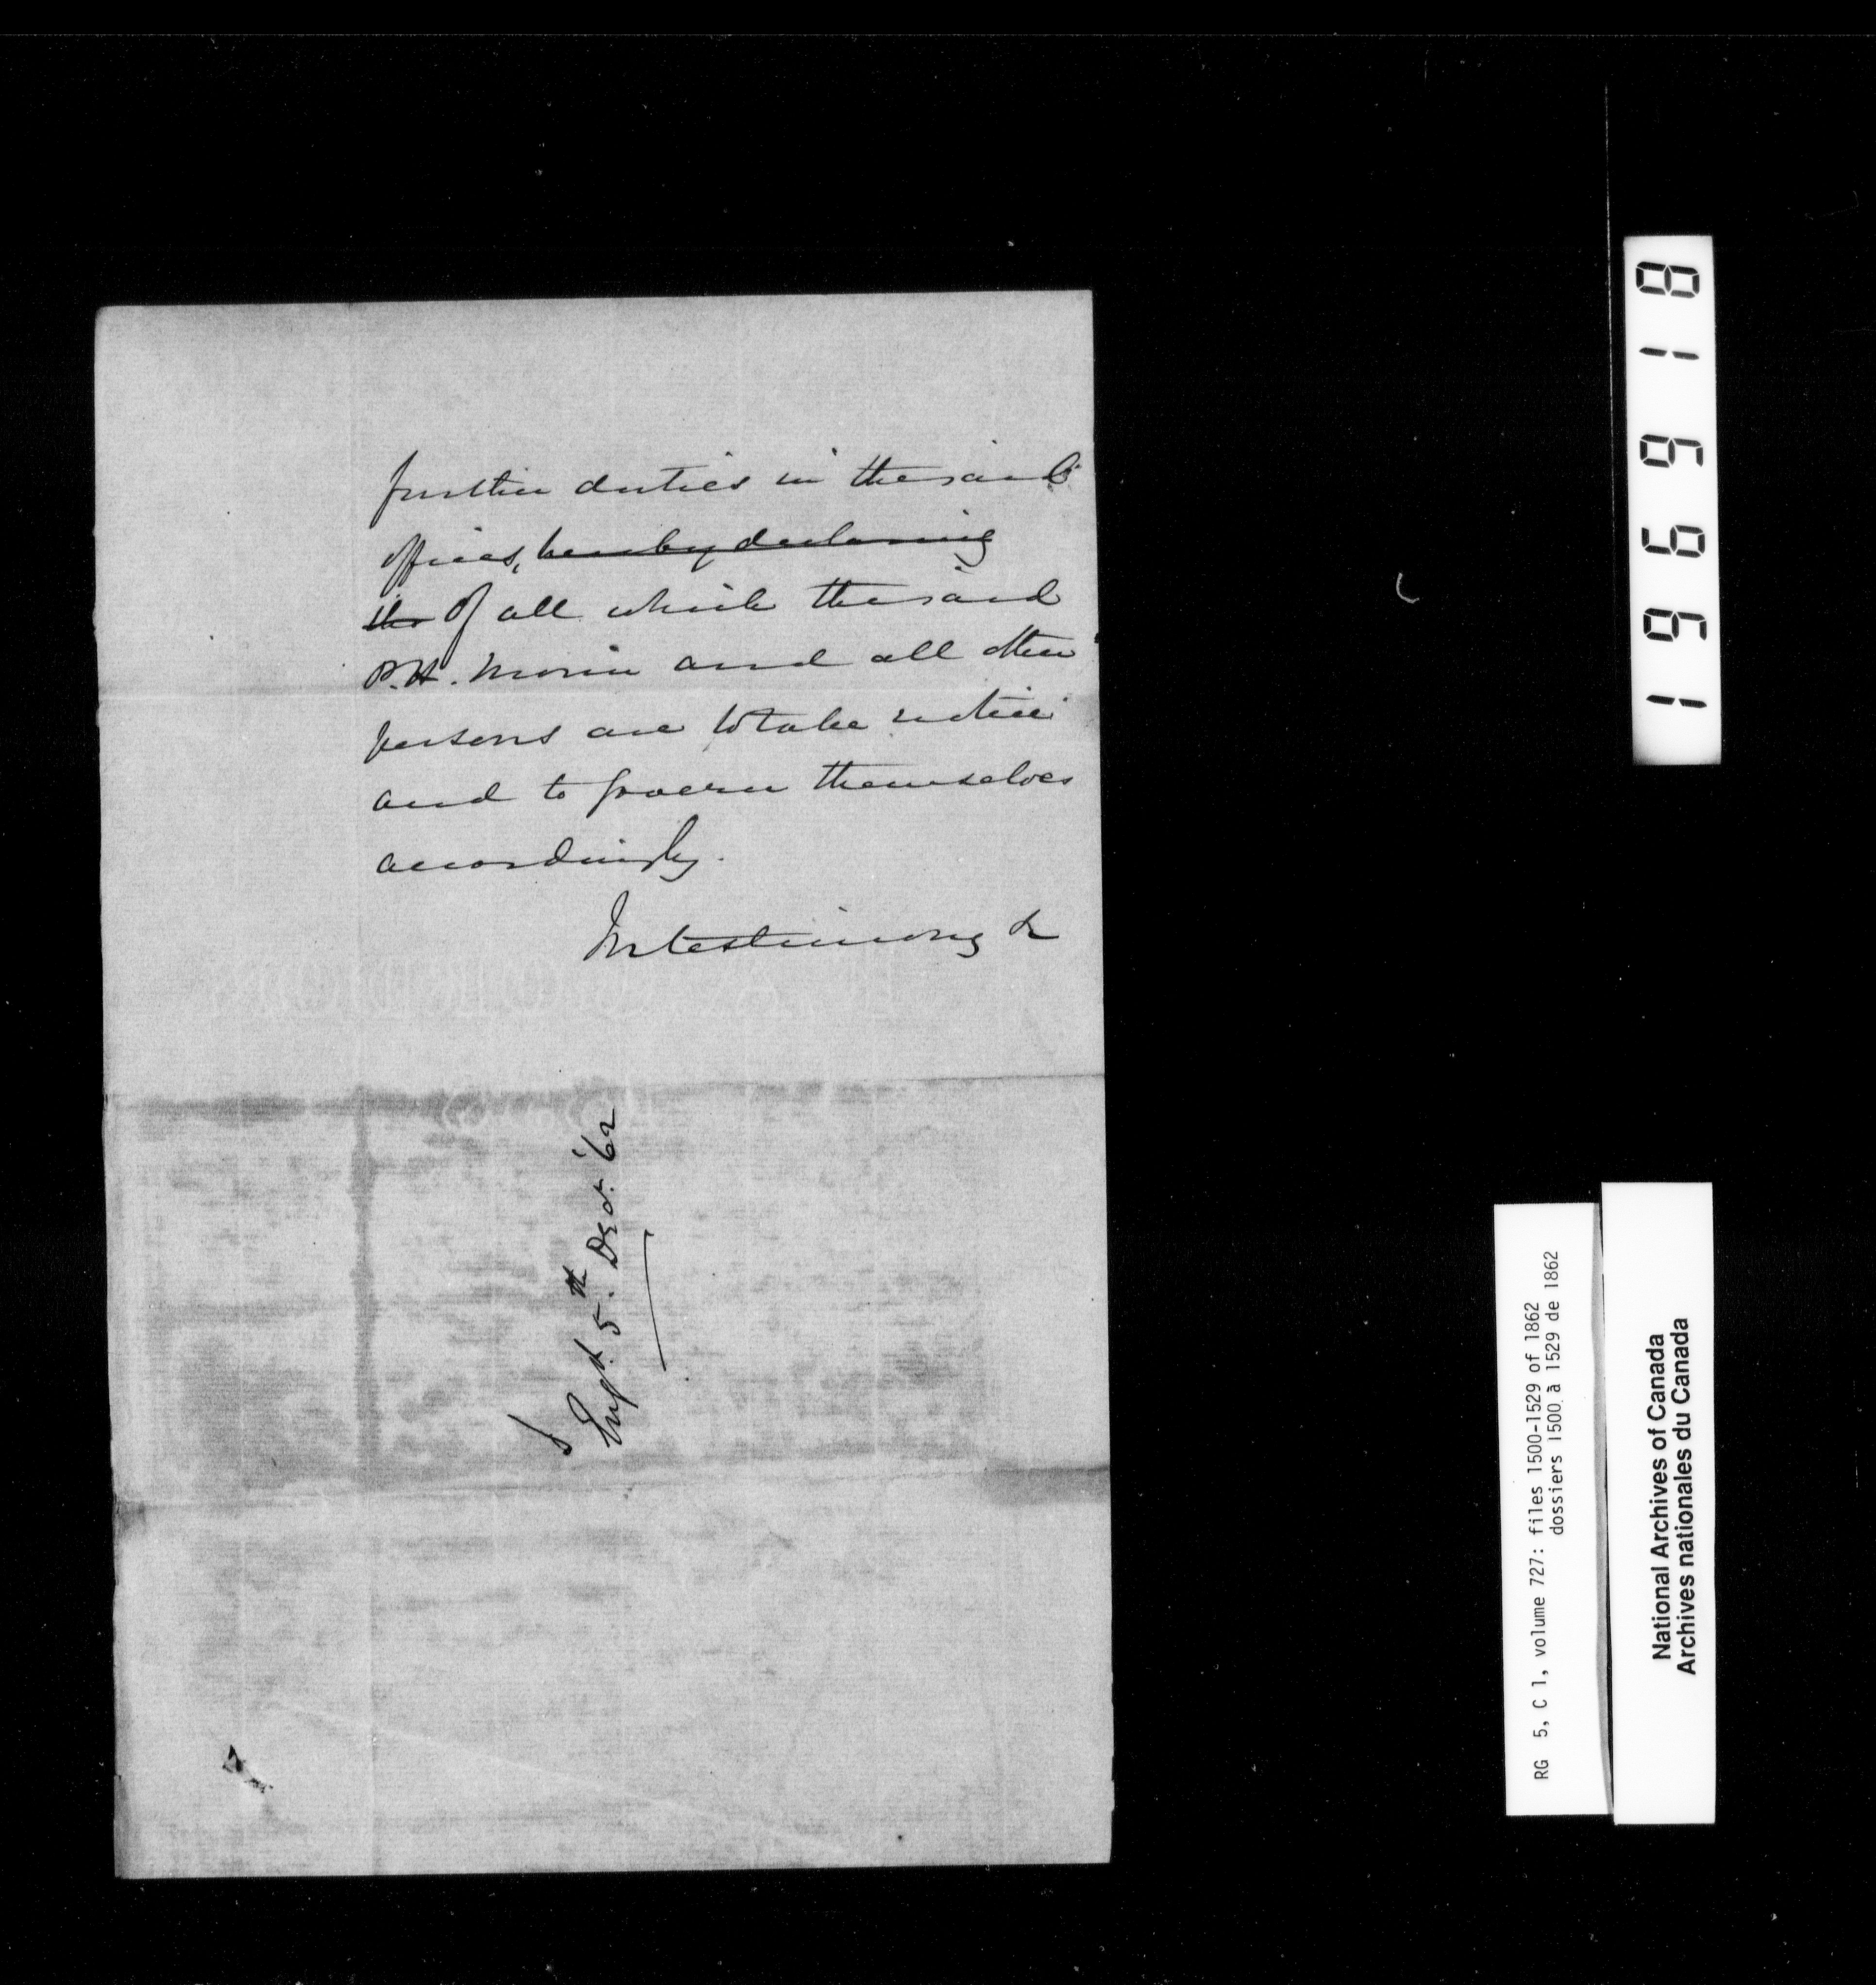 further duties in the said
offices, hereby declaring
the of all which the said
P. H. Morin and all other
persons are to take notice
and to govern themselves
accordingly.
In testimony &
Engd. 5th Decr. '62
196918
RG 5, C 1, volume 727: files 1500-1529 of 1862
dossiers 1500 à 1529 de 1862
National Archives of Canada
Archives nationales du Canada